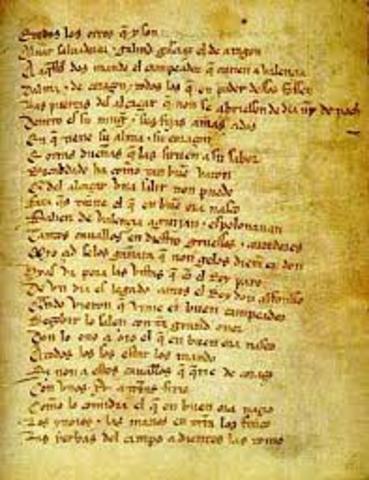 E todos los otros q̃ y son
Aluar saluadorez ⁊ galind garçiaz el de aragon
A aq̃stos dos mando el campeador q̃ curien a valençia
Dalma ⁊ de coraçon ⁊ todos los q̃ en poder dessos fossen
Las puertas del alcaçar q̃ non se abriessen de dia nĩ de noch
Dentro es su mugiẽ ⁊ sus fijas amas ados
En q̃ tiene su alma ⁊ su coraçon
E otras dueñas q̃ las siruen a su sabor
Recabdado ha como tan buẽ varon
Q̃ del alcaçar vna salir non puede
Fata q̃s torne el q̃ en buẽ ora nasco
Salien de valençia aguijan ⁊ espolonauan
Tantos cauallos en diestro gruessos ⁊ corredores
Myo çid selos gañara q̃ non gelos dierã en don
Hyas va pora las vistas q̃ cõ el rey paro
De vn dia es legado antes el rey don alfonsso
Q̃ndo vieron q̃ vinie el buen campeador
Reçebir lo salen con tã grand onor
Don lo ouo a oio el q̃ en buen ora nasco
A todos los sos estar los mando
Si non a estos cauallos q̃ q̃rie de coraçõ
Con vnos xv a tr̃ras firio
Cõmo lo comidia el q̃ en buen ora naçio
Los ynoios ⁊ las manos en tr̃ra los finco
Las yerbas del campo a dientes las tomo